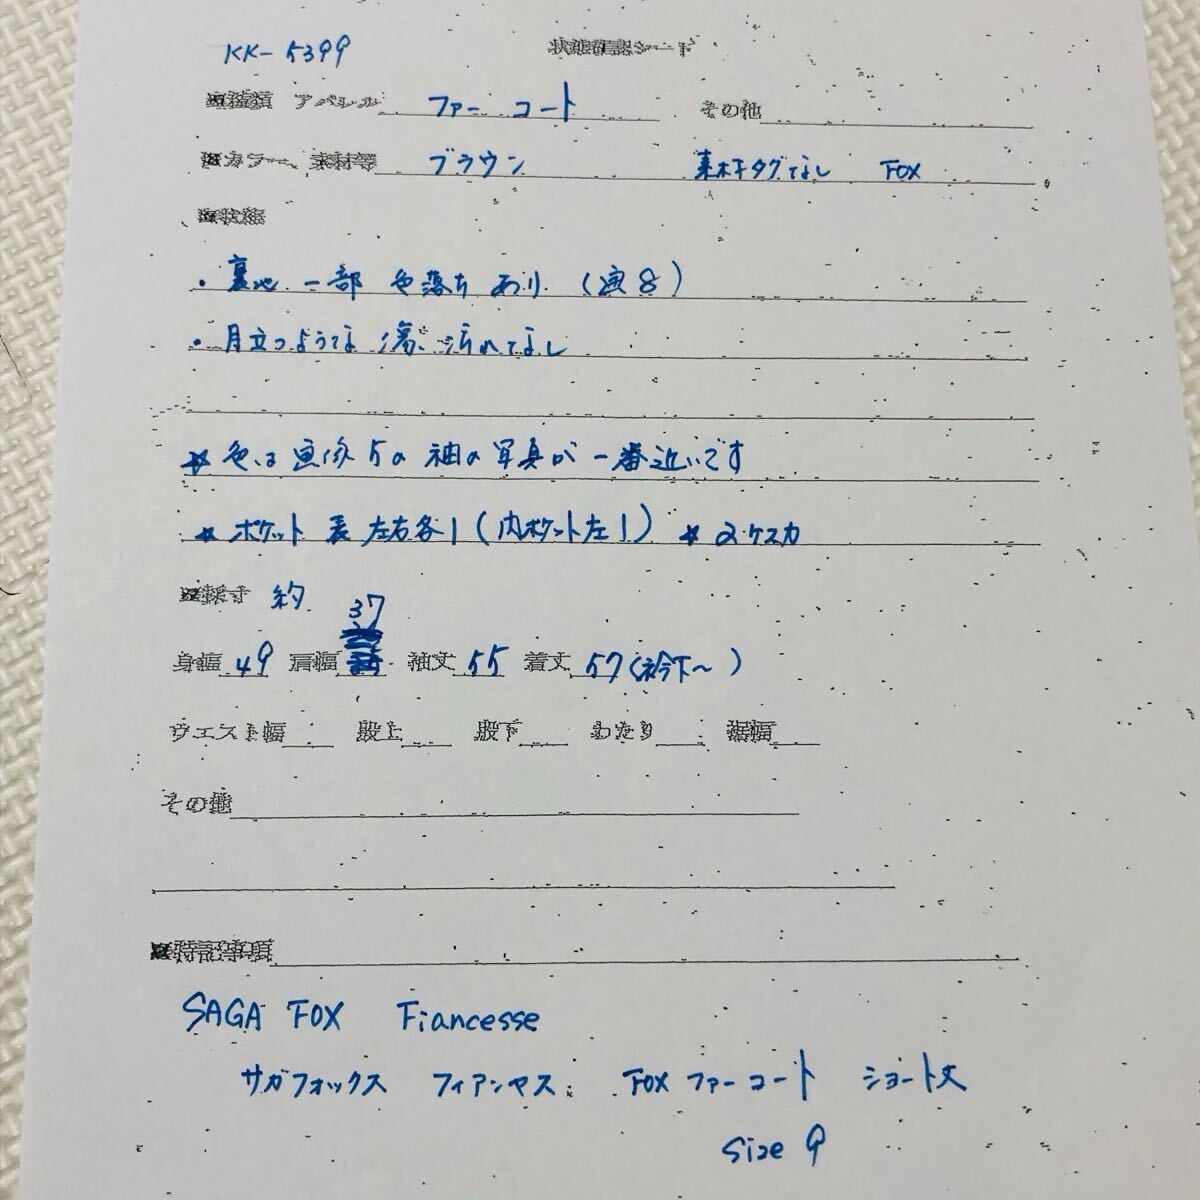 KK-5399 状態確認シート
※種類 アパレル ファーコート その他
※カラー、素材等 ブラウン 素材タグなし FOX
※状態
・裏地 一部 色落ち あり (画8)
・目立つような 傷、汚れなし
☆ 色は 画像 5の 袖の写真が 一番近いです
☆ ポケット 表 左右各1(内ポケット左1) ☆ 2ケスカ
※採寸 約
身幅 49 肩幅 37 袖丈 55 着丈 57(衿下〜)
ウエスト幅 股上 股下 わたり 裾幅
その他
※特記事項
SAGA FOX Fiancesse
サガフォックス フィアンセス FOX ファーコート ショート丈
Size 9